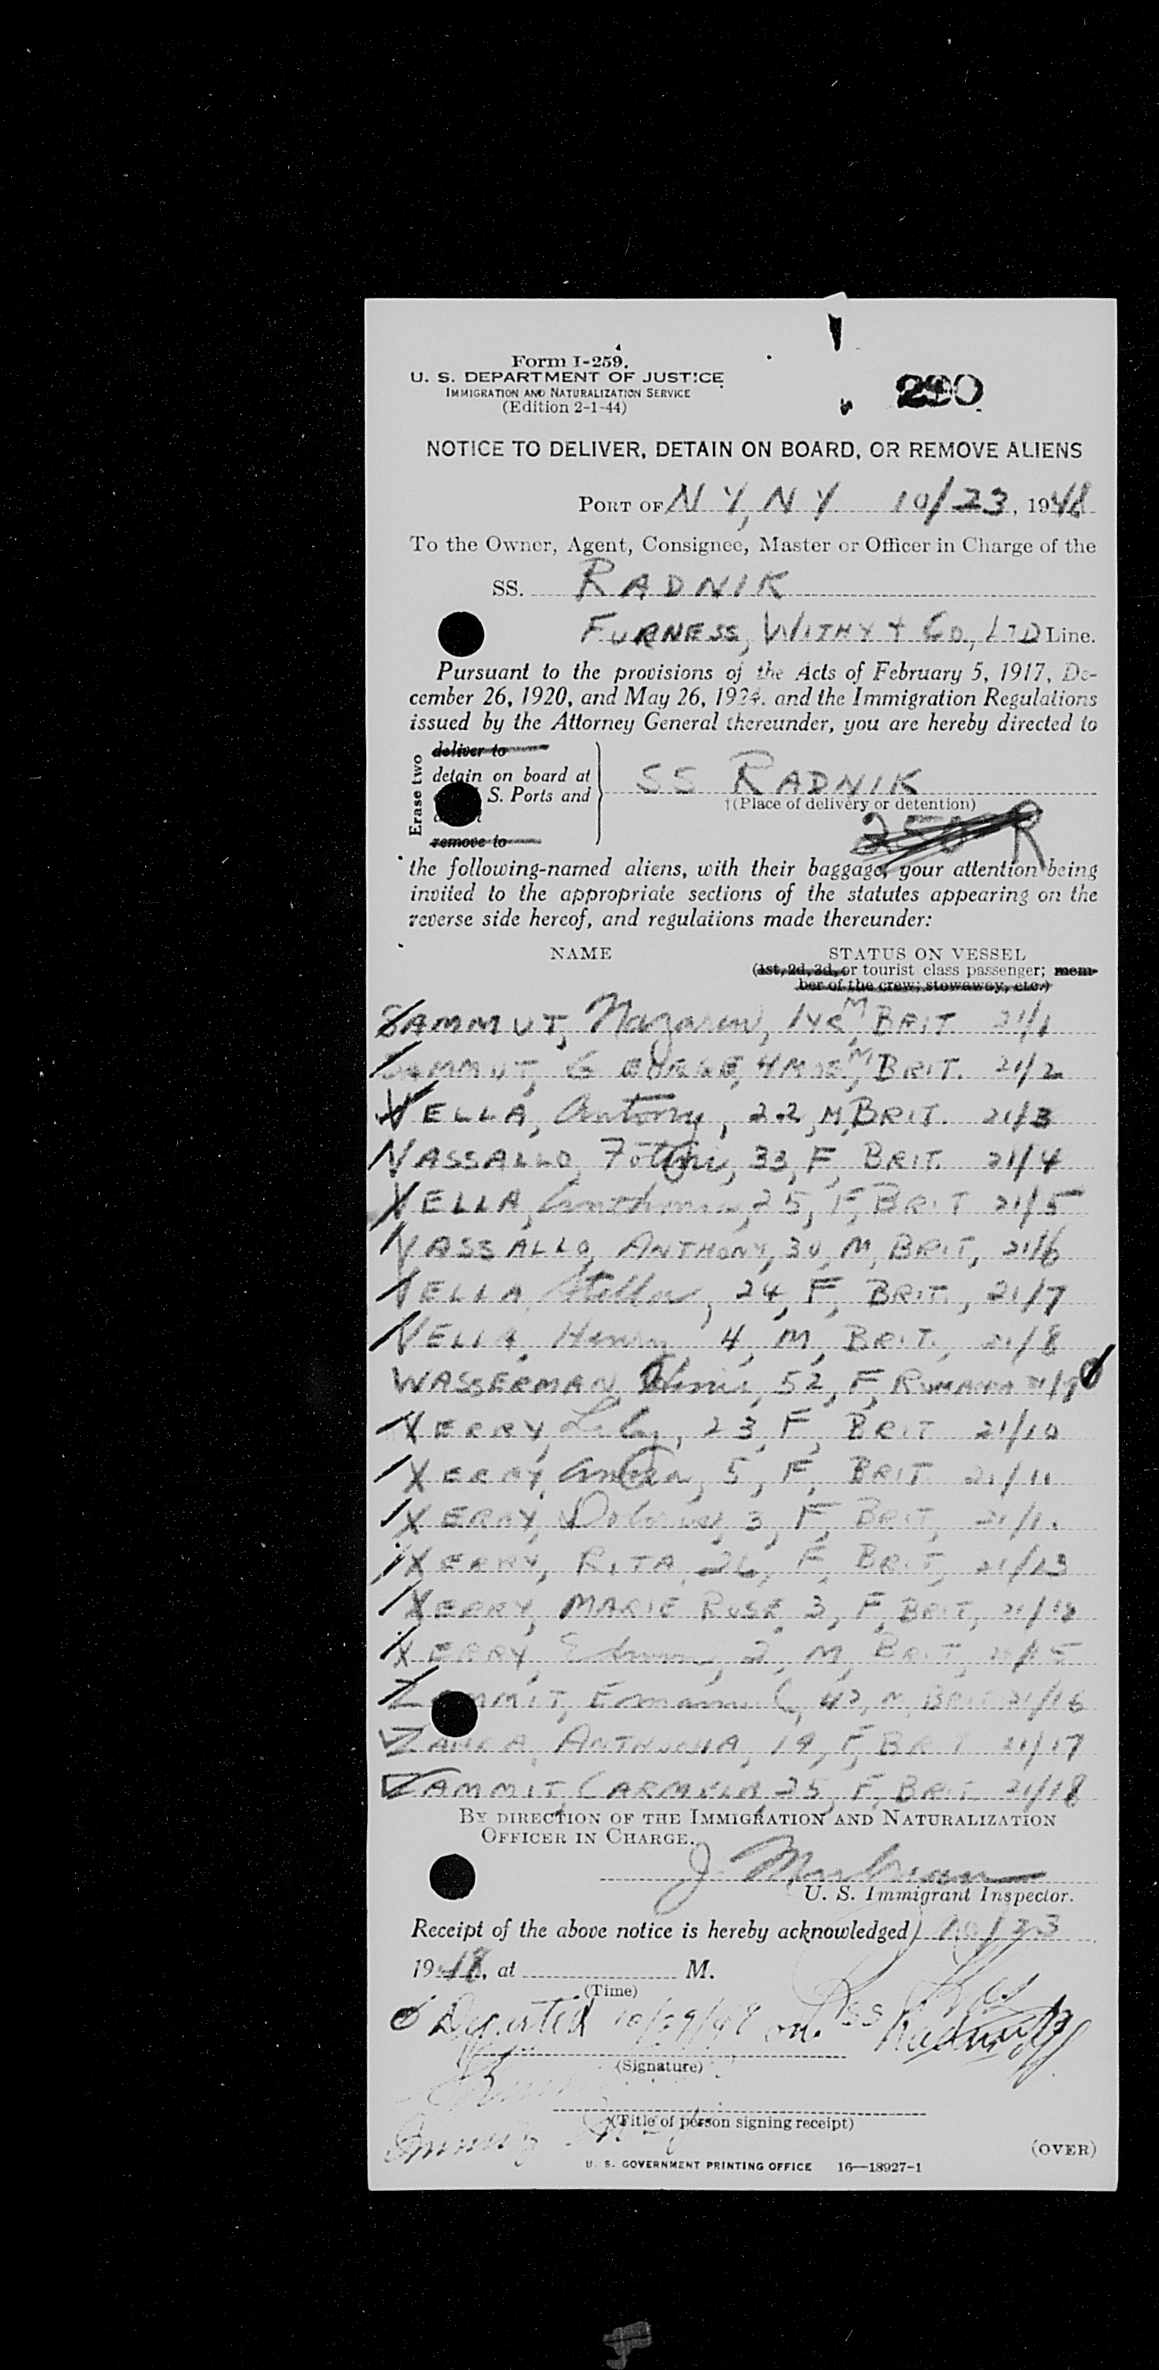 Form I-259.
U. S. DEPARTMENT OF JUSTICE
IMMIGRATION AND NATURALIZATION SERVICE
(Edition 2-1-44)
290
NOTICE TO DELIVER, DETAIN ON BOARD, OR REMOVE ALIENS
PORT OF N Y, N Y 10/23, 1948
To the Owner, Agent, Consignee, Master or Officer in Charge of the
SS. RADNIK
FURNESS, WITHY + CO., LTD Line.
Pursuant to the provisions of the Acts of February 5, 1917, De-
cember 26, 1920, and May 26, 1924, and the Immigration Regulations
issued by the Attorney General thereunder, you are hereby directed to
Erase two
deliver to
detain on board at
S. Ports and
remove to
SS RADNIK
†(Place of delivery or detention)
the following-named aliens, with their baggage, your attention being
invited to the appropriate sections of the statutes appearing on the
reverse side hereof, and regulations made thereunder:
NAME STATUS ON VESSEL
(1st, 2d, 3d, or tourist class passenger; mem-
ber of the crew; stowaway, etc.)
SAMMUT, M BRIT. 21/1
SAMMUT, GEORGE, 4 MOS, M BRIT. 21/2
VELLA, Antony, 22, M, BRIT. 21/3
VASSALLO, 33, F, BRIT. 21/4
VELLA, 25, F, BRIT 21/5
VASSALLO, ANTHONY, 30, M, BRIT, 21/6
VELLA, Stella, 24, F, BRIT., 21/7
VELLA, Henry 4, M, BRIT., 21/8
WASSERMAN 52, F, 21/9
XERRY, Lily, 23, F, BRIT 21/10
XERRY, 5, F, BRIT 21/11
XERRY, Dolores, 3, F, BRIT,
XERRY, RITA, 26, F, BRIT, 21/13
XERRY, MARIE ROSE 3, F, BRIT,
XERRY, 2, M, BRIT, 21/15
Emanuel, 42, M, BRIT 21/16
19, F, BRIT 21/17
ZAMMIT, CARMELA, 25, F, BRIT 21/18
BY DIRECTION OF THE IMMIGRATION AND NATURALIZATION
OFFICER IN CHARGE.
U. S. Immigrant Inspector.
Receipt of the above notice is hereby acknowledged 10/23
1948, at M.
(Time)
Departed 10/29/48 on SS Radnik
(Signature)
(Title of person signing receipt)
(OVER)
U. S. GOVERNMENT PRINTING OFFICE 16—18927-1